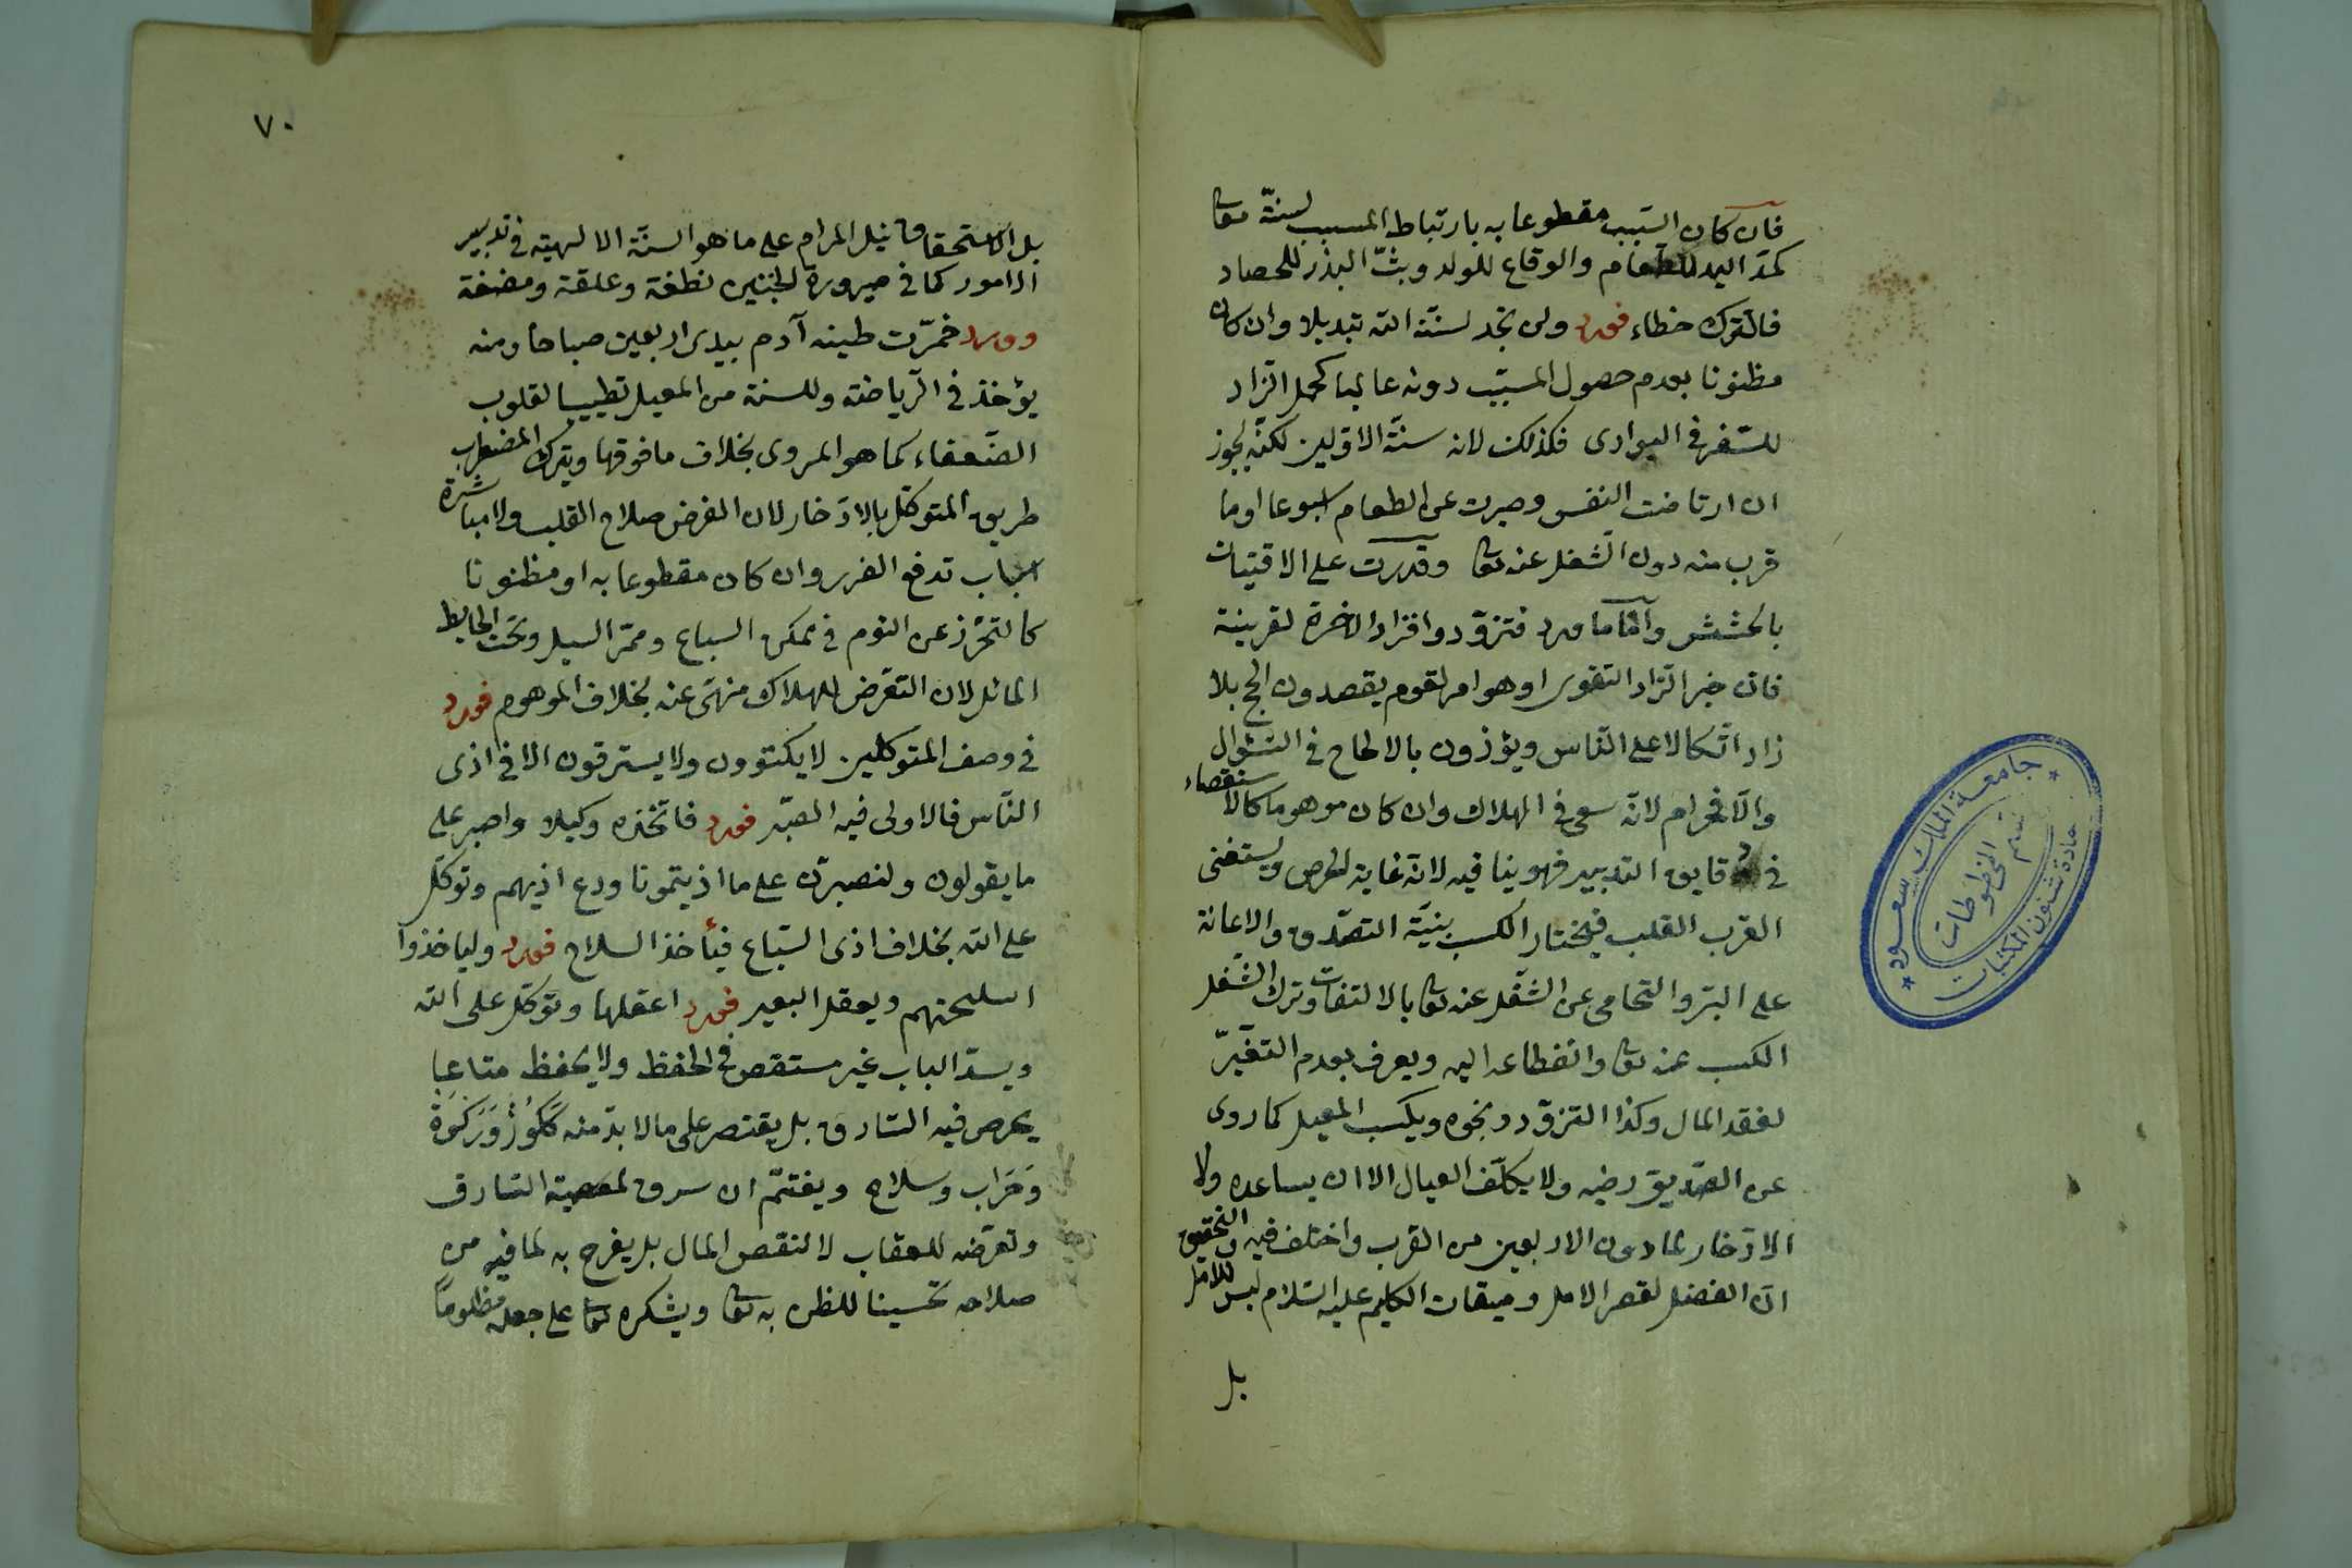 فان كان السبب مقطوعا به بارتباط المسبب لسنة تعا
كمد اليد للطعام والوقاع للولد وبث البذر للحصاد
فالترك خطاء فورد ولن تجد لسنة الله تبديلا وان كان
مظنونا بعدم حصول المسبب دونه غالبا كحمل الزاد
للسفر في البوادى فكذلك لانه سنة الاولين لكنه يجوز
ان ارتاضت النفس وصبرت عن الطعام اسبوعا اوما
قرب منه دون الشغل عنه تعا وقدرت على الاقتيات
بالحشش وامّا ما ورد فتزوّدوا فزاد الاخرة لقرينة
فان خير الزاد التقوى او هو امر لقوم يقصدون الحج بلا
زاد اتكالا على الناس ويؤذون بالالحاح في السؤال
والّا فحرام لانه سعى في الهلاك وان كان موهوما كالاستقصاء
في دقايق التدبير فهو ينافيه لانه غاية الحرص ويستغنى
القرب القلب فيختار الكسب بنيّة التصدّق والاعانة
على البرّ والتحامى عن الشغل عنه تعا بالالتفات وترك الشغل
الكسب عنه تعا وانقطاعه اليه ويعرف بعدم التغيّر
لفقد المال وكذا التزوّد ونحوه ويكسب المعيل كما روى
عن الصّديق رضيه ولا يكلّف العيال الا ان يساعده ولا
الادّخار لما دون الاربعين من القرب واختلف فيه والتحقيق
انّ الفضل لقصر الامل وميقات الكليم عليه السّلام ليس للامل
بل
٧٠
بل لاستحقاق نيل المرام على ما هو السنّة الالهيته في تدبير
الامور كما في صيرورة الجنين نطفة وعلقة ومضغة
وورد خمّرت طينه آدم بيدى اربعين صباحا ومنه
يؤخذ في الرّياضة وللسنة من المعيل تطييبا لقلوب
الضّعفاء كما هو المروى بخلاف ما فوقها ويترك المضطرب
طريق المتوكّل بالادّخار لان الغرض صلاح القلب ولا مباشرة
اسباب تدفع الضرر وان كان مقطوعا به او مظنونا
كالتحرّز عن النوم في ممكن السباع وممرّ السيل وتحت الحايط
المائل لان التعرّض للهلاك منهىّ عنه بخلاف الموهوم فورد
في وصف المتوكلين لا يكتوون ولا يسترقون الا في اذى
النّاس فالاولى فيه الصّبر فورد فاتّخذه وكيلا واصبر على
ما يقولون ولنصبرنّ على ما اذيتمونا ودع اذيهم وتوكّل
على الله بخلاف اذى السّباع فيأخذ السلاح فورد وليأخذوا
اسلحتهم ويعقل البعير فورد اعقلها وتوكّل على الله
ويسدّ الباب غير مستقص في الحفظ ولا يحفظ متاعا
يحرص فيه السّارق بل يقتصر على ما لا بدّ منه ككوز وركوة
وجراب وسلاح ويغتمّ ان سرق لمعصية السّارق
وتعرّضه للعقاب لا لنقص المال بل يفرح به لما فيه من
صلاحه تحسينا للظن به تعا ويشكره تعا على جعله مظلوما
جامعة الملك سعود
قسم المخطوطات
عمادة شئون المكتبات